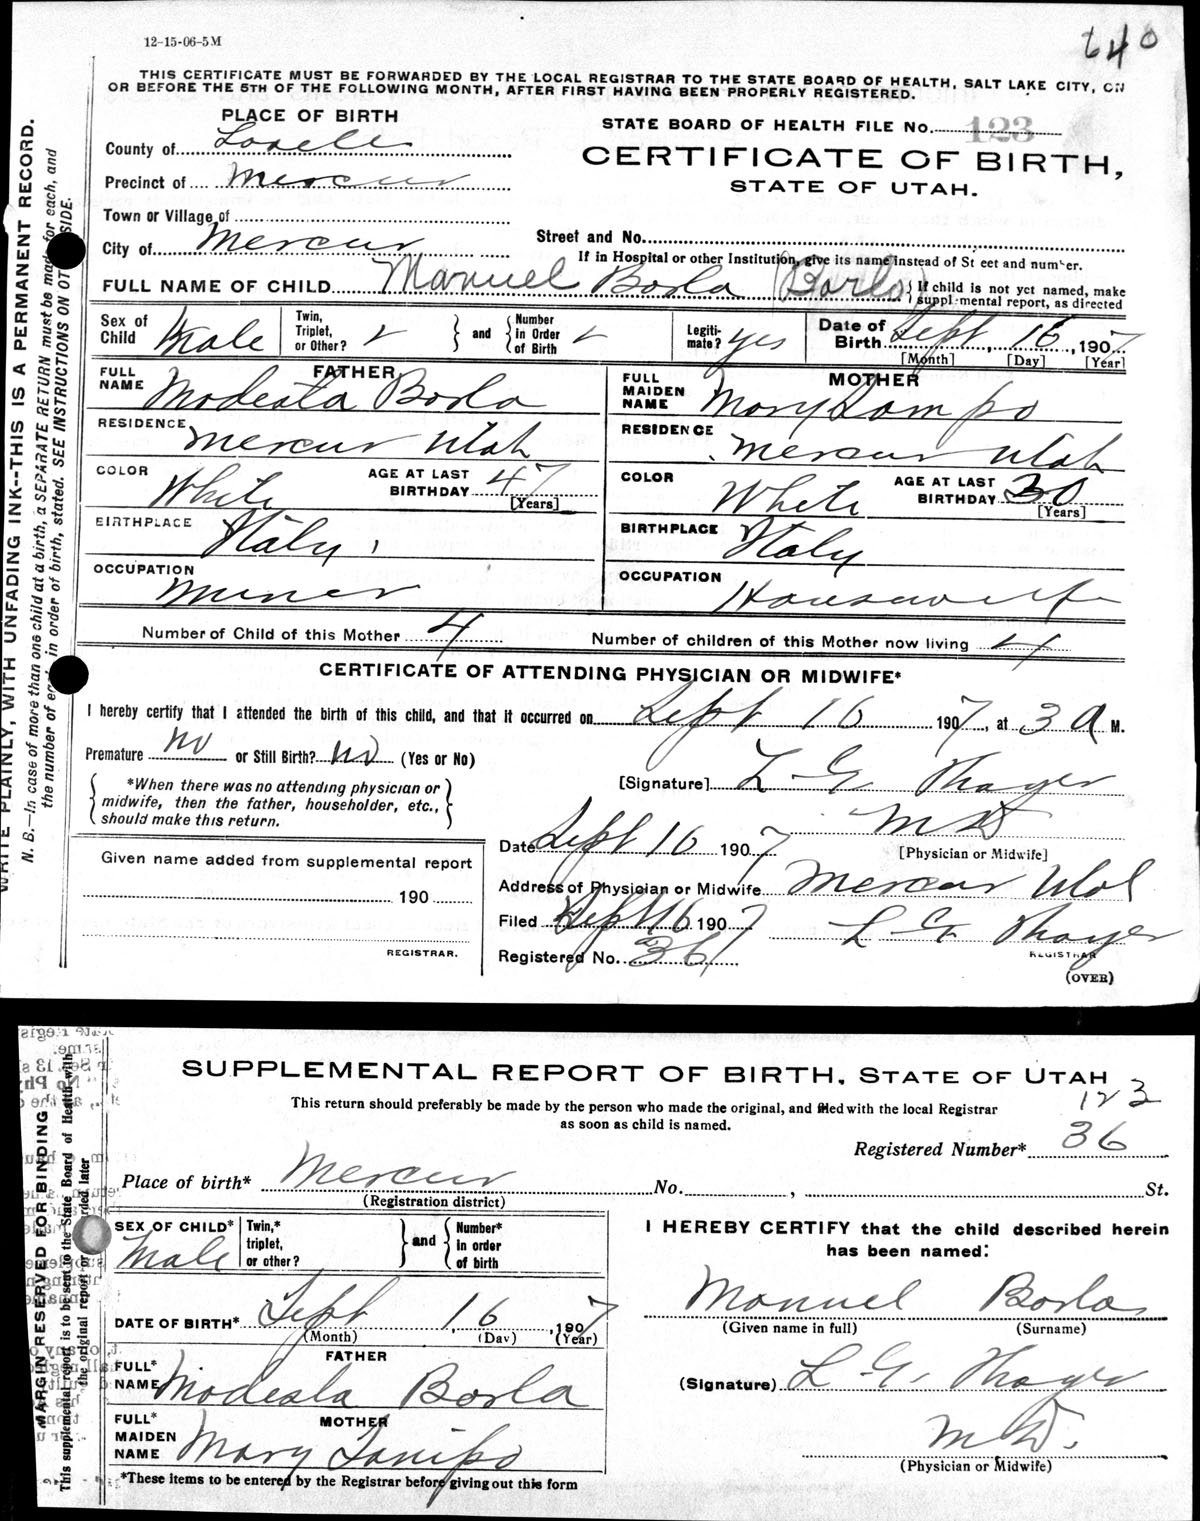 12-15-06-5M
640
THIS CERTIFICATE MUST BE FORWARDED BY THE LOCAL REGISTRAR TO THE STATE BOARD OF HEALTH, SALT LAKE CITY, ON
OR BEFORE THE 5TH OF THE FOLLOWING MONTH, AFTER FIRST HAVING BEEN PROPERLY REGISTERED.
PLACE OF BIRTH
STATE BOARD OF HEALTH FILE No. 123
County of
CERTIFICATE OF BIRTH,
Precinct of Mercur
STATE OF UTAH.
Town or Village of
City of Mercur
Street and No.
If in Hospital or other Institution, give its name instead of St eet and number.
FULL NAME OF CHILD Manuel Borla (Borlo)
If child is not yet named, make
suppl mental report, as directed
Sex of Child Male
Twin, Triplet, or Other?
and
Number in Order of Birth
Legiti-mate? yes
Date of Birth Sept 16, 1907
[Month] [Day] [Year]
FATHER
FULL NAME Modesta Borla
RESIDENCE Mercur Utah
COLOR White
AGE AT LAST BIRTHDAY 47
[Years]
BIRTHPLACE Italy
OCCUPATION Miner
MOTHER
FULL MAIDEN NAME Mary
RESIDENCE Mercur Utah
COLOR White
AGE AT LAST BIRTHDAY 30
[Years]
BIRTHPLACE Italy
OCCUPATION Housewife
Number of Child of this Mother 4
Number of children of this Mother now living 4
CERTIFICATE OF ATTENDING PHYSICIAN OR MIDWIFE*
I hereby certify that I attended the birth of this child, and that it occurred on Sept 16 1907, at 3 A M.
Premature no or Still Birth? no (Yes or No)
*When there was no attending physician or
midwife, then the father, householder, etc.,
should make this return.
[Signature] L G Thayer
M D
[Physician or Midwife]
Date Sept 16 1907
Address of Physician or Midwife Mercur Utah
Filed Sept 16 1907 L G Thayer
REGISTRAR
Registered No. 36
(OVER)
Given name added from supplemental report
190
REGISTRAR.
WRITE PLAINLY, WITH UNFADING INK--THIS IS A PERMANENT RECORD.
N. B.—In case of more than one child at a birth, a SEPARATE RETURN must be made for each, and
the number of each in order of birth, stated. SEE INSTRUCTIONS ON OTHER SIDE.
SUPPLEMENTAL REPORT OF BIRTH, STATE OF UTAH
123
This return should preferably be made by the person who made the original, and filed with the local Registrar
as soon as child is named.
Registered Number* 36
Place of birth* Mercur No. , St.
(Registration district)
SEX OF CHILD* Male
Twin,* triplet, or other?
and
Number* in order of birth
DATE OF BIRTH* Sept 16, 1907
(Month) (Day) (Year)
FATHER
FULL* NAME Modesta Borla
MOTHER
FULL* MAIDEN NAME Mary
*These items to be entered by the Registrar before giving out this form
I HEREBY CERTIFY that the child described herein
has been named:
Manuel Borla
(Given name in full) (Surname)
(Signature) L G. Thayer
M D.
(Physician or Midwife)
MARGIN RESERVED FOR BINDING
This supplemental report is to be sent to the State Board of Health with
the original report